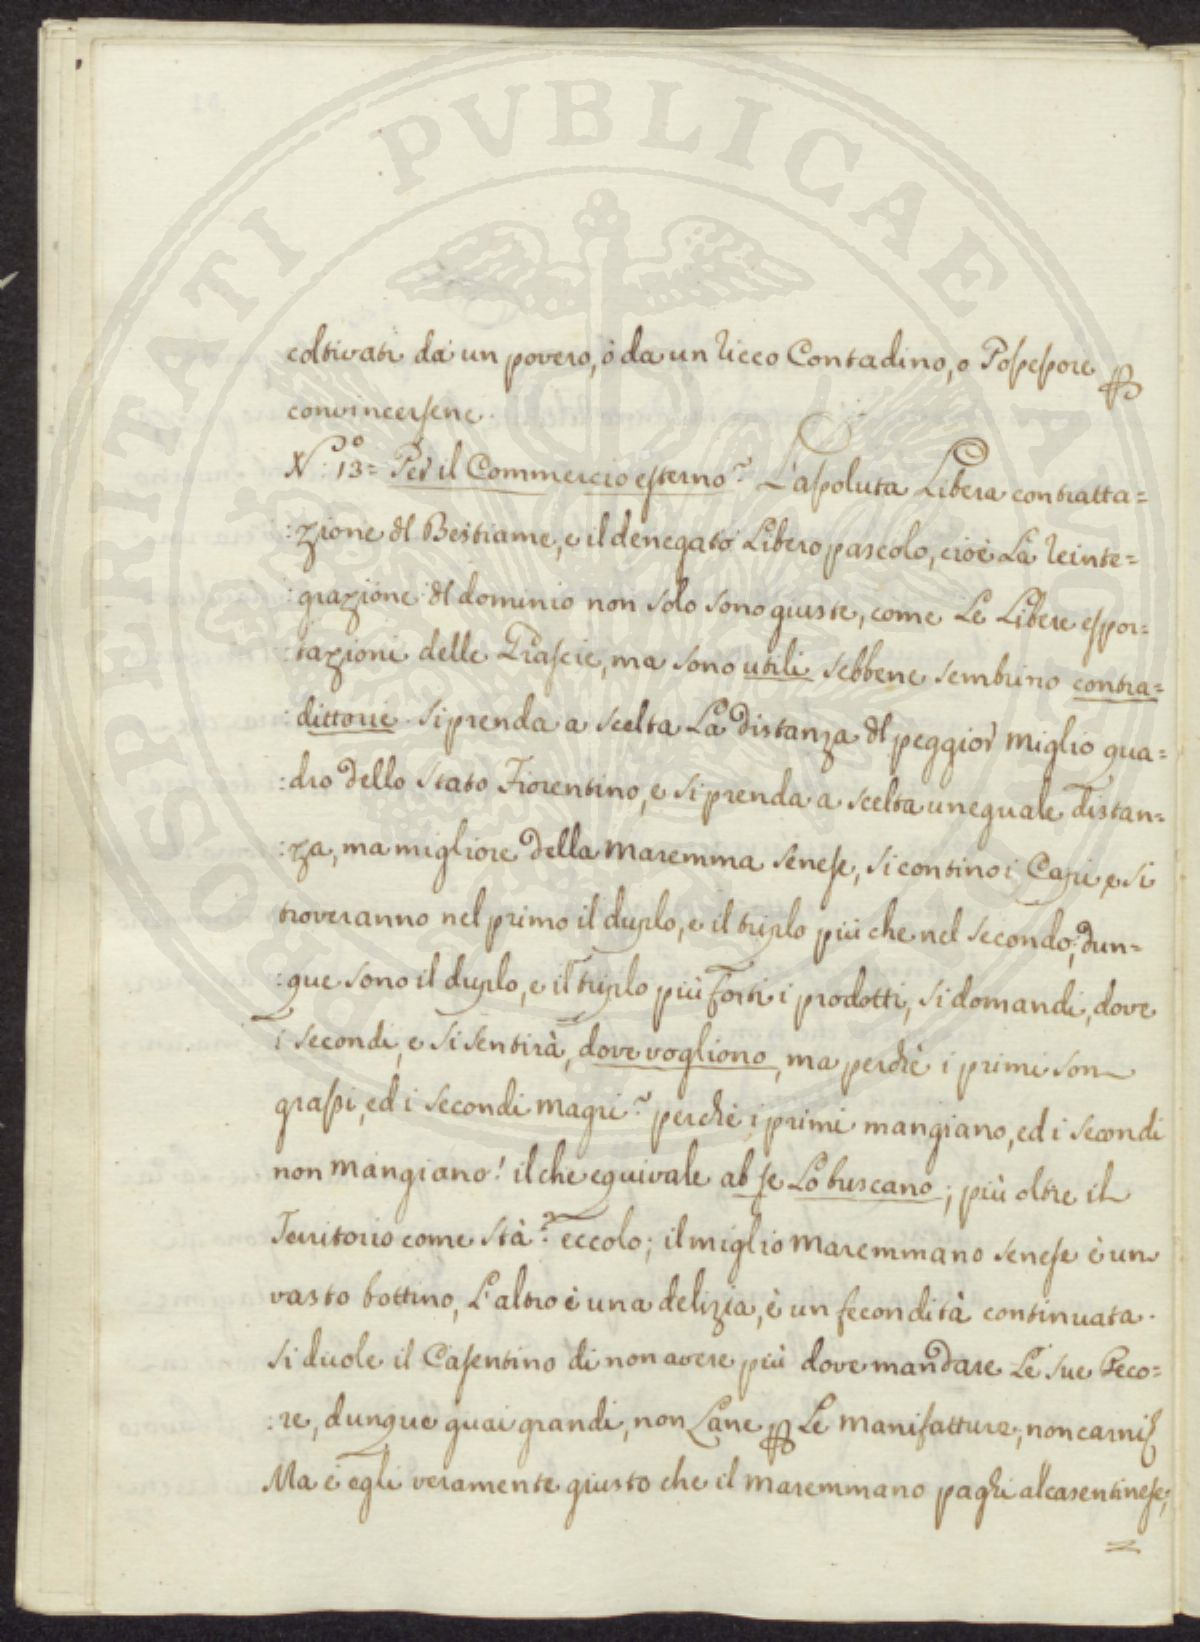 PROSPERITATI PVBLICAE AVGENDAE
coltivati da un povero, ò da un ricco Contadino, o Possessore per
convincersene.
N.º 13= Per il Commercio esterno~ L'assoluta Libera contratta=
:zione del Bestiame, e il denegato Libero pascolo, cioè La reinte=
:grazione del dominio non solo sono giuste, come Le Libere espor=
:tazioni delle Grascie, ma sono utili sebbene sembrino contra=
:dittorie. Si prenda a scelta La distanza del peggior miglio qua=
:dro dello stato Fiorentino, e si prenda a scelta uneguale distan=
:za, ma migliore della maremma senese, si contino i Capi, e si
troveranno nel primo il duplo, e il triplo più che nel secondo; dun=
:que sono il duplo, e il triplo più forti i prodotti, si domandi, dove
i secondi, e si sentirà, dove vogliono, ma perchè i primi son
grassi, ed i secondi magri~ perchè i primi mangiano, ed i secondi
non mangiano! il che equivale ab se Lo buscano; più oltre il
Territorio come stà~ eccolo; il miglio maremmano senese è un
vasto bottino, L'altro è una delizia, è un fecondità continuata.
Si duole il Casentino di non avere più dove mandare Le sue Peco=
:re, dunque guai grandi, non Lane per Le manifatture, non carni
Ma è egli veramente giusto che il maremmano paghi al casentinese;
=